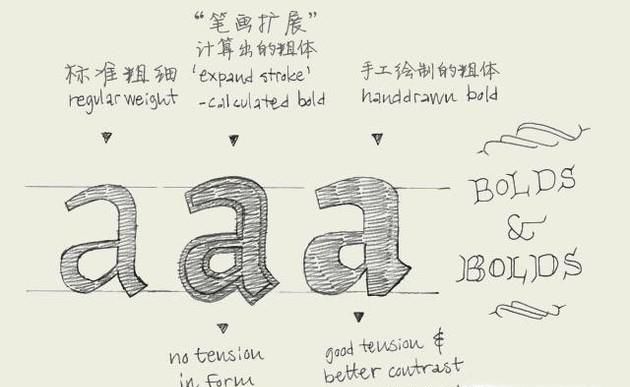 标准粗细
regular weight
“笔画扩展”
计算出的粗体
'expand stroke'
-calculated bold
手工绘制的粗体
handdrawn bold
a a a
BOLDS
&
BOLDS
no tension
in form
good tension &
better contrast